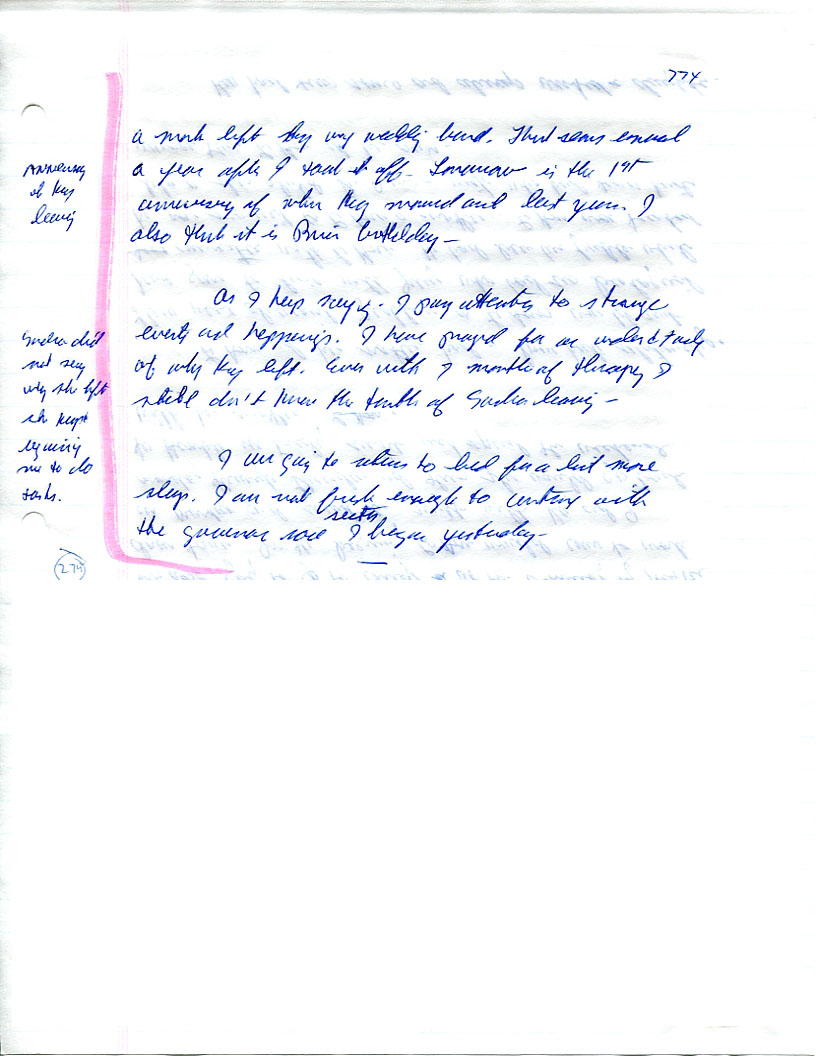 774
a mark left by my wedding band. That seems
a year after I took it off. Tomorrow is the 1st
anniversary of when they moved out last year. I
also think it is birthday –
Anniversary
of they
leaving
As I keep saying. I pay attention to strange
events and happenings. I have prayed for an understanding
of why they left. Even with 7 months of therapy I
still don't know the truth of Sandra leaving –
Sandra did
not say
why she left
she kept
me to do
tasks.
I am going to return to bed for a bit more
sleep. I am not fresh enough to continue with
the I began yesterday –
274